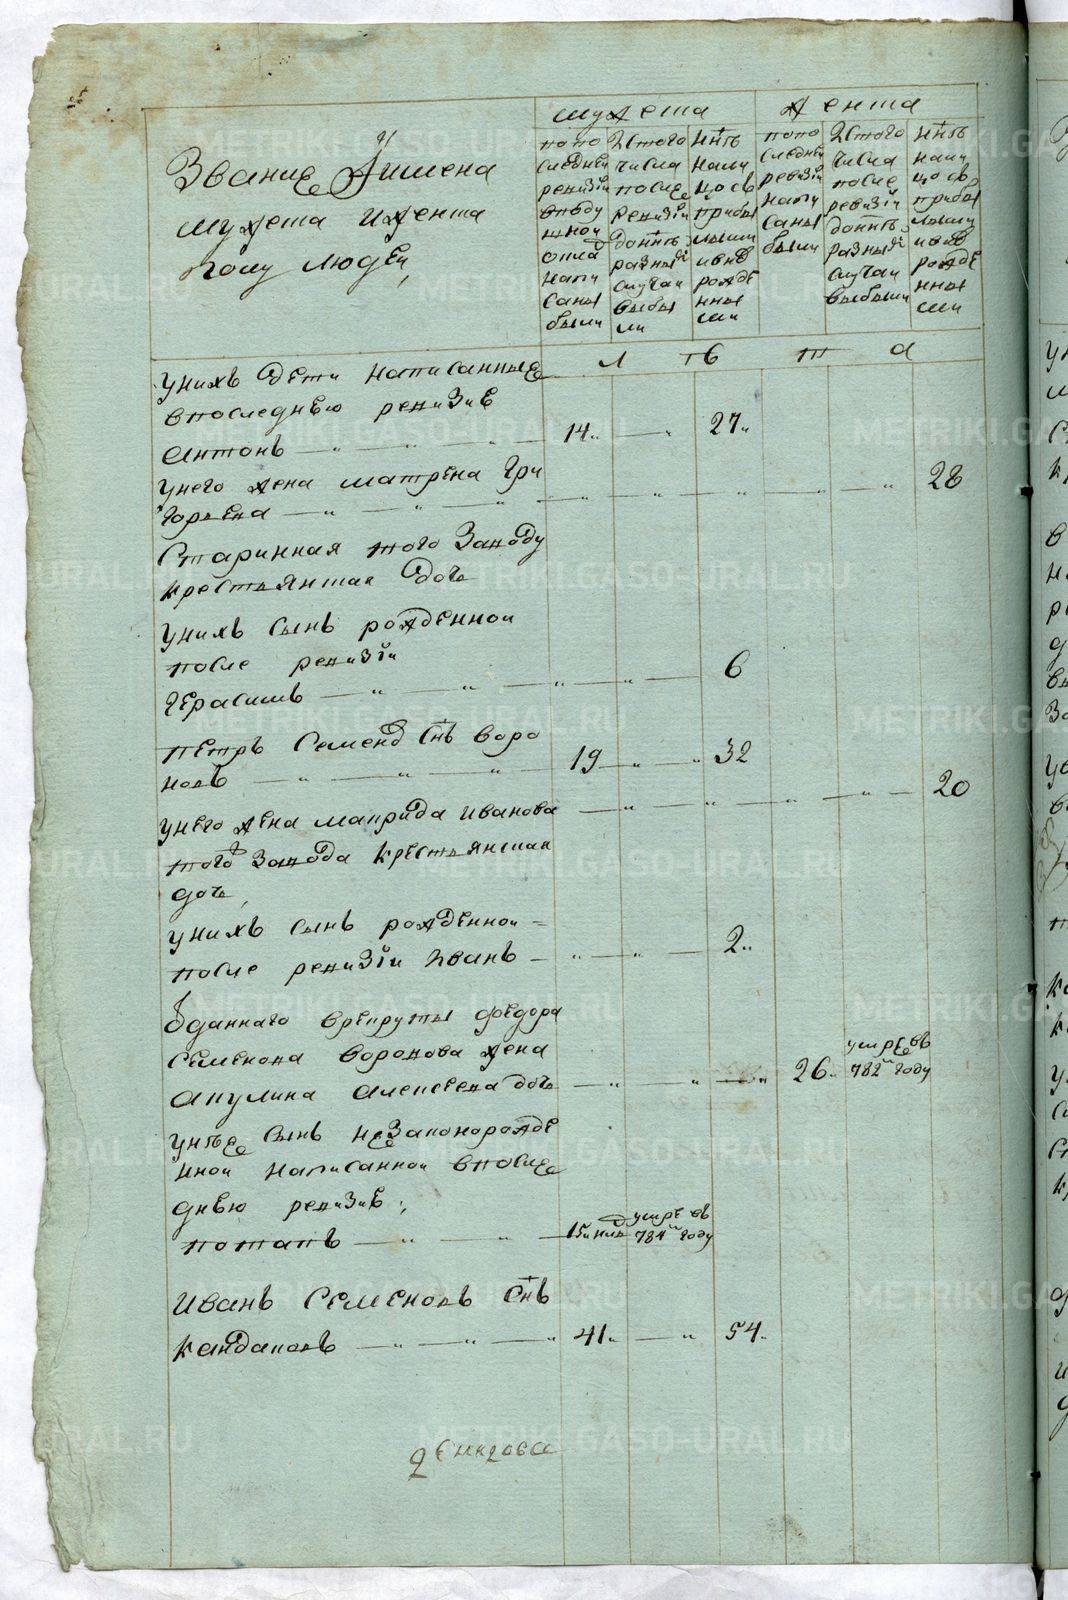 мужеска
женска
Звание Иимена
мужеска иженска
полу людей,
попо
следней
ревизии
вподу
шной
оклад
напи
саны
были
Истого
числа
после
ревизии
донынъ
разныхъ
случаи
выбы
ли
нынъ
нали
цо съ
прибы
лыми
ивнов
рожде
нны
ми
попо
следней
ревизии
напи
саны
были
Истого
числа
после
ревизии
донынъ
разныхъ
случаи
выбыли
нынъ
нали
цо съ
прибы
лыми
ивнов
рожде
нны
ми
лѣта
унихъ дети написанные
впоследнюю ревизию
Антонъ 14 27
унего жена матрена гри
горьева 28
Старинная того Заводу
крестьянская дочь
унихъ сынъ рожденной
после ревизии
Герасимъ 6
петръ Семеновъ Снъ воро
новъ 19 32
унего жена маврида иванова 20
того Завода крестьянская
дочь,
унихъ сынъ рожденной
после ревизии Иванъ 2
Отданнаго врекруты федора
Семенова воронова жена
Акулина Алексеева дочь 26 умре въ 782м году
унъее сынъ незаконорожде
нной написанной впосле
днюю ревизию,
потапъ 15 умре въ 784м году
Иванъ Семеновъ Снъ
кайдаловъ 41 54
METRIKI.GASO-URAL.RU